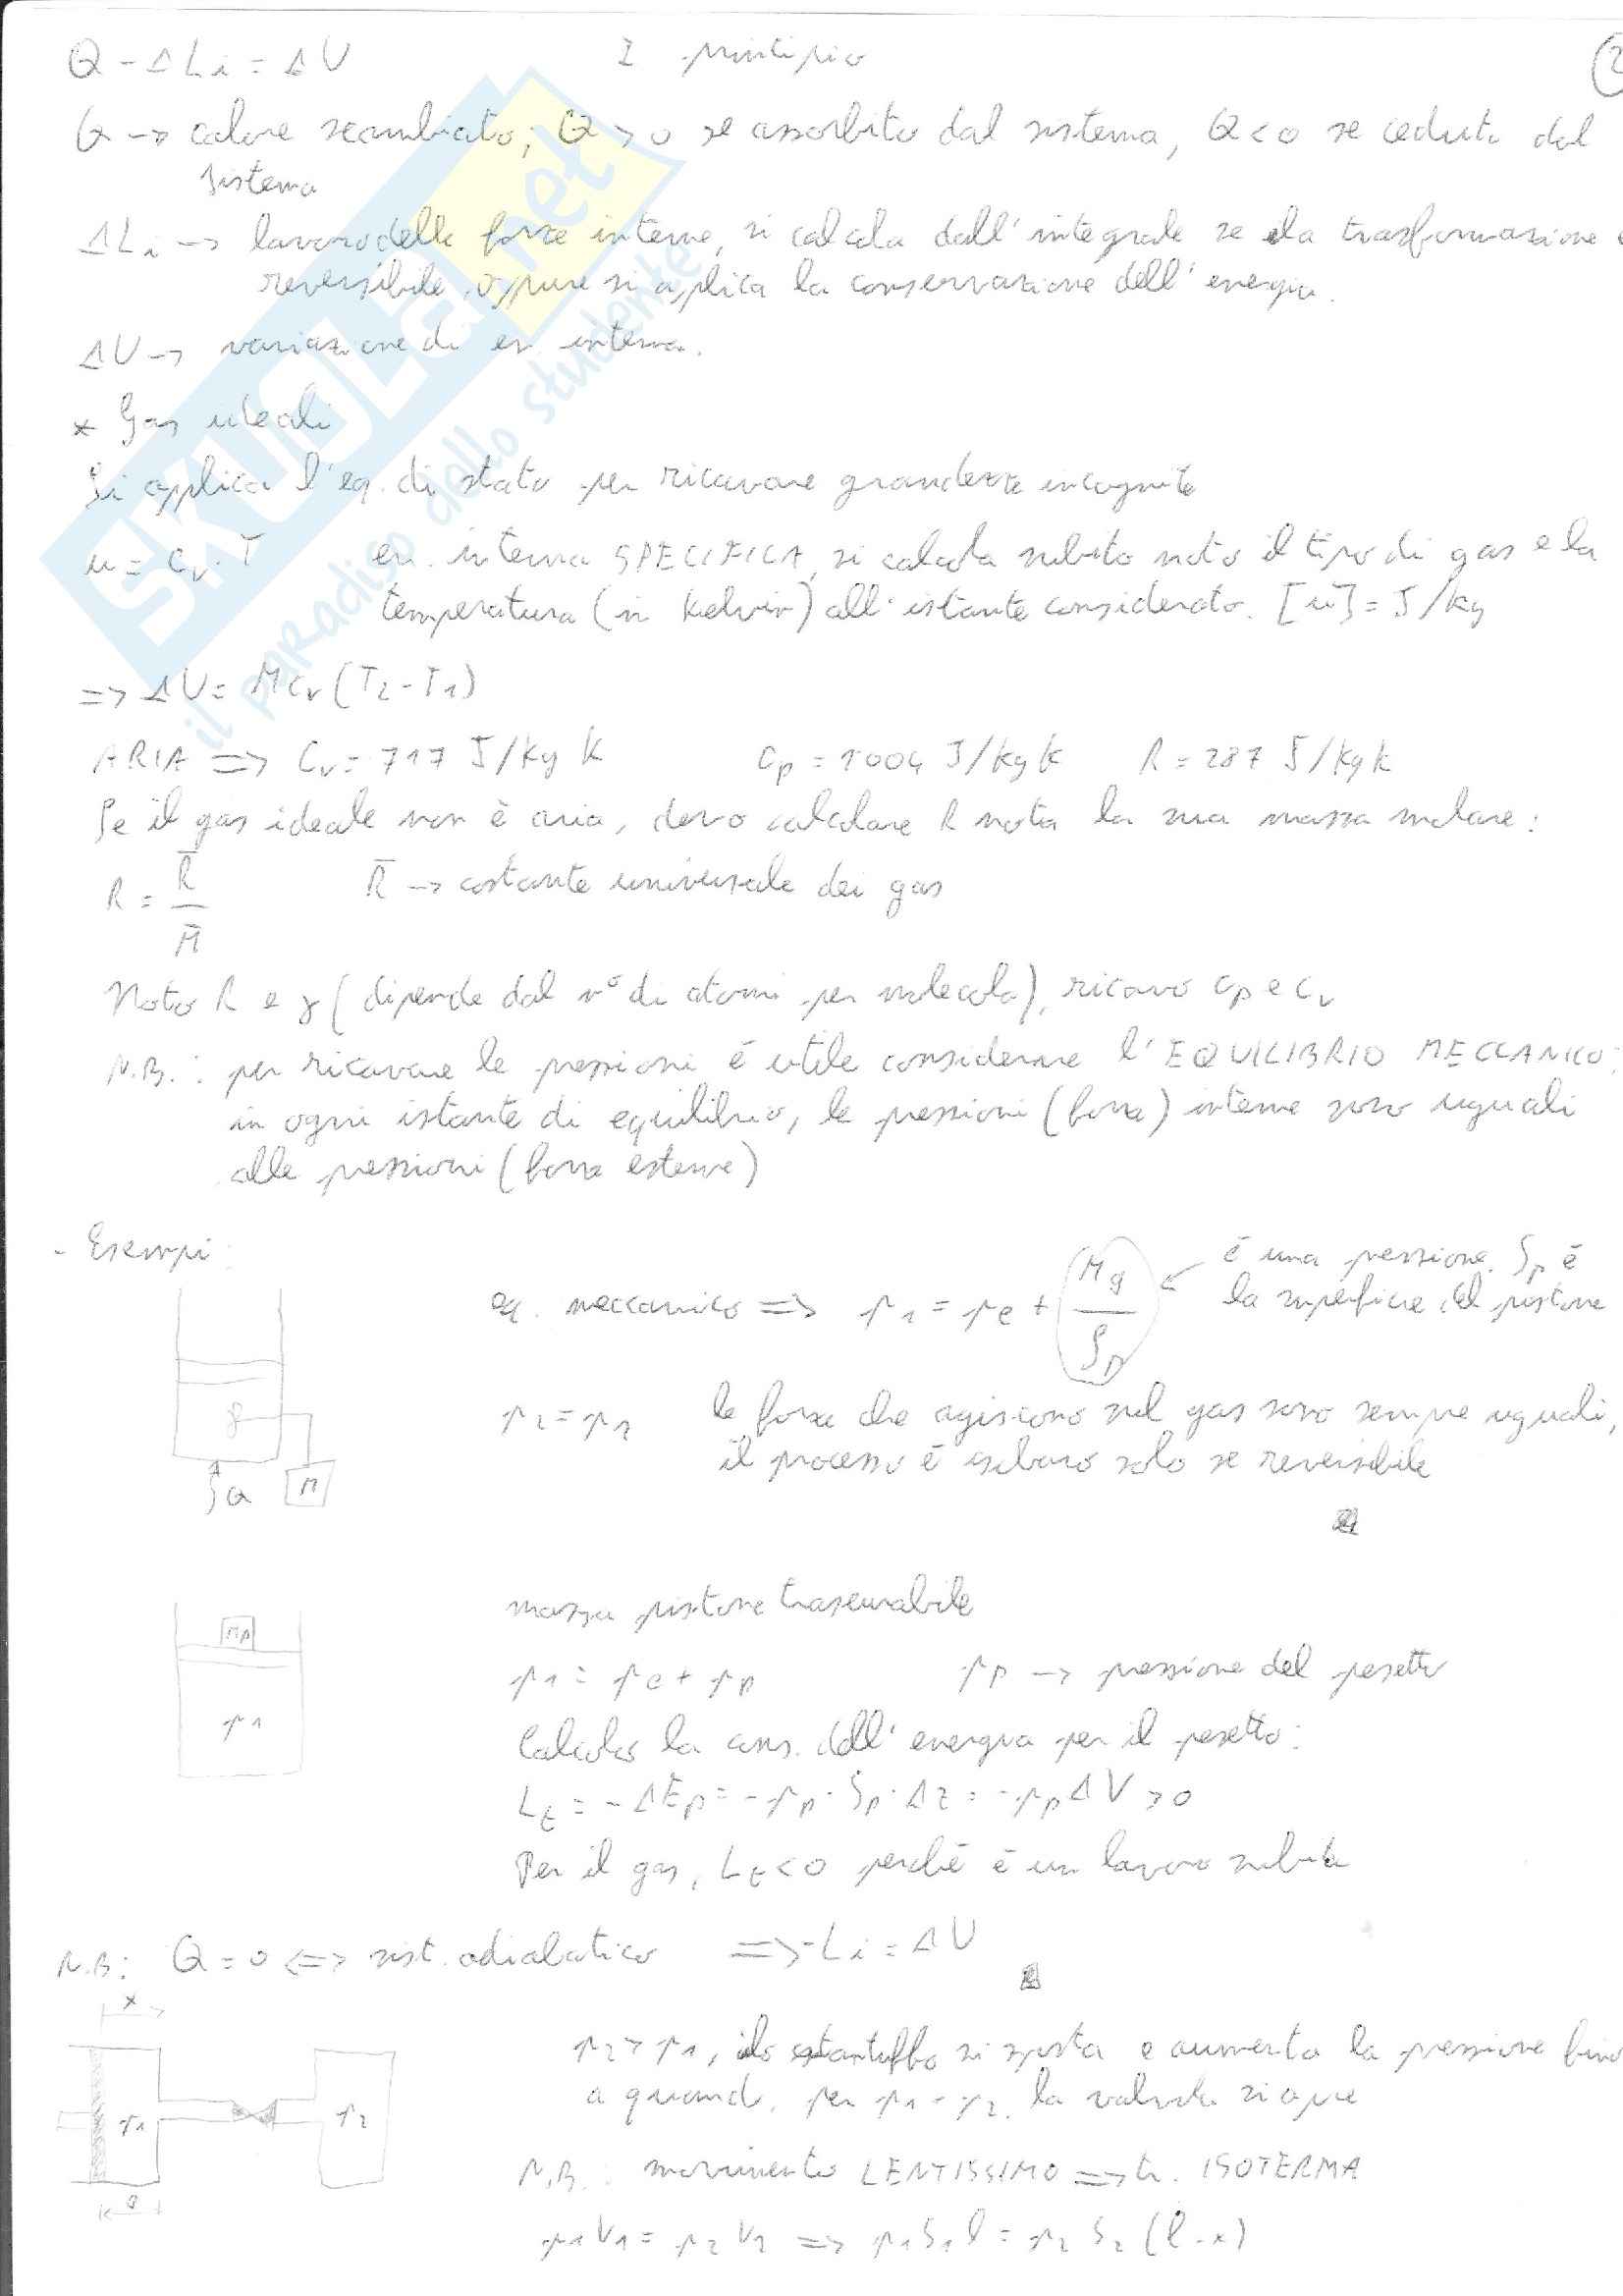 Q - ΔLi = ΔU I principio (2
Q -> calore scambiato; Q > 0 se assorbito dal sistema, Q < 0 se ceduto dal
sistema
ΔLi -> lavoro delle forze interne, si calcola dall'integrale se la trasformazione è
reversibile, oppure si applica la conservazione dell'energia.
ΔU -> variazione di en. interna.
* Gas ideali
Si applica l'eq. di stato per ricavare grandezze incognite
u = cv · T en. interna SPECIFICA, si calcola subito noto il tipo di gas e la
temperatura (in Kelvin) all'istante considerato. [u] = J/kg
=> ΔU = M cv (T2 - T1)
ARIA => cv = 717 J/kg K cp = 1004 J/kg K R = 287 J/kg K
Se il gas ideale non è aria, devo calcolare R nota la sua massa molare:
R = R̄/M̄ R̄ -> costante universale dei gas
Noto R e γ (dipende dal n° di atomi per molecola), ricavo cp e cv
N.B.: per ricavare le pressioni è utile considerare l'EQUILIBRIO MECCANICO:
in ogni istante di equilibrio, le pressioni (forze) interne sono uguali
alle pressioni (forze esterne)
- Esempi:
eq. meccanico => p1 = pe + Mg/Sp <- è una pressione. Sp è
la superficie del pistone
g
p2 = p1 le forze che agiscono sul gas sono sempre uguali,
il processo è isobaro solo se reversibile
Q M
massa pistone trascurabile
Mp
p1 = pe + pp pp -> pressione del pesetto
p1
Calcolo la cons. dell'energia per il pesetto:
Lt = -ΔEp = -pp · Sp · Δz = -pp ΔV > 0
Per il gas, Lt < 0 perchè è un lavoro subito
N.B.: Q = 0 <=> sist. adiabatico => -Li = ΔU
x
p2 > p1, lo stantuffo si sposta e aumenta la pressione fino
a quando, per p1 = p2, la valvola si apre
p1 p2
N.B.: movimento LENTISSIMO => tr. ISOTERMA
l
p1 V1 = p2 V2 => p1 S1 l = p2 S2 (l - x)
SKUOLA.net
il paradiso dello studente